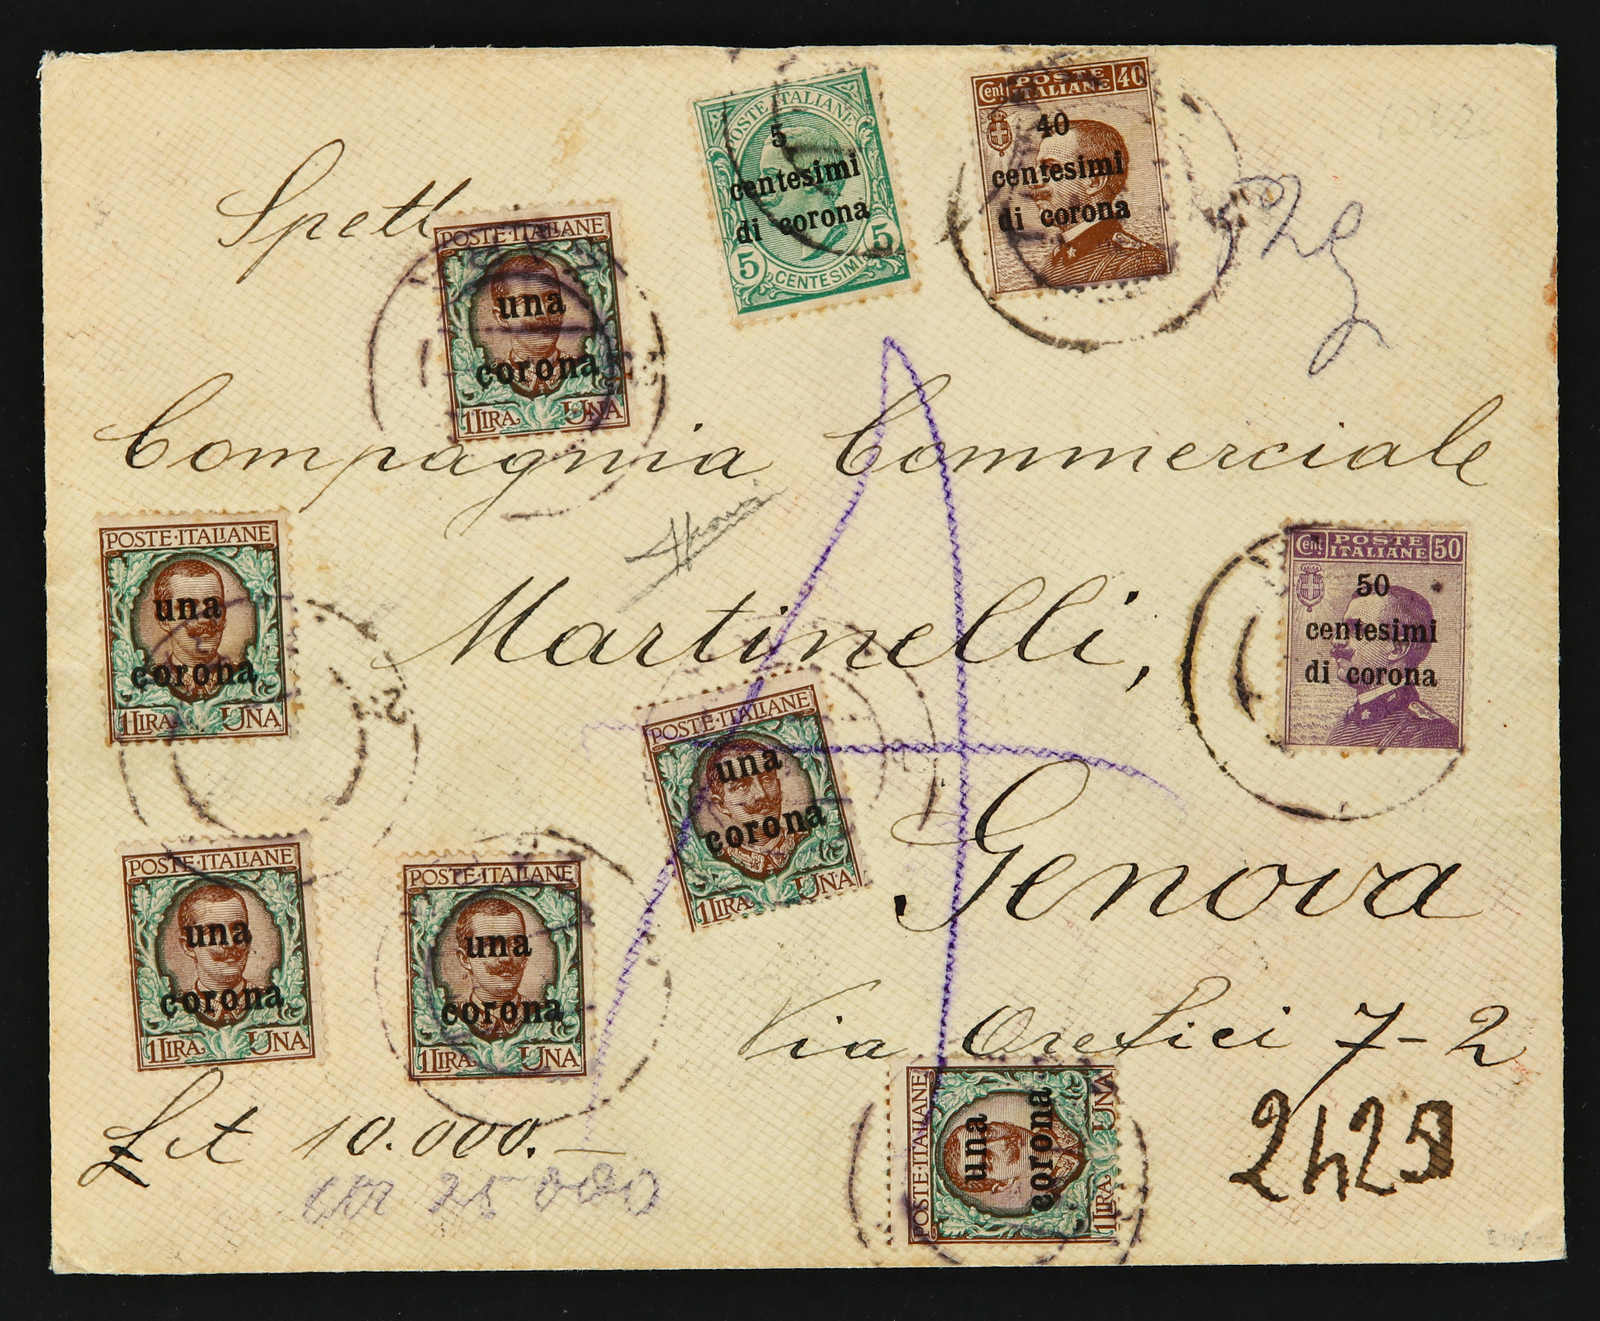 POSTE ITALIANE
5
centesimi
di corona
5 CENTESIMI 5
Cent POSTE ITALIANE 40
40
centesimi
di corona
Spett
POSTE·ITALIANE
una
corona
1 LIRA UNA
Compagnia Commerciale
POSTE·ITALIANE
una
corona
1 LIRA UNA
Cent POSTE ITALIANE 50
50
centesimi
di corona
Martinelli,
POSTE·ITALIANE
una
corona
1 LIRA UNA
Genova
POSTE·ITALIANE
una
corona
1 LIRA UNA
POSTE·ITALIANE
una
corona
1 LIRA UNA
Via Orefici 7-2
Lit 10.000.—
25 000
POSTE·ITALIANE
una
corona
1 LIRA UNA
2429